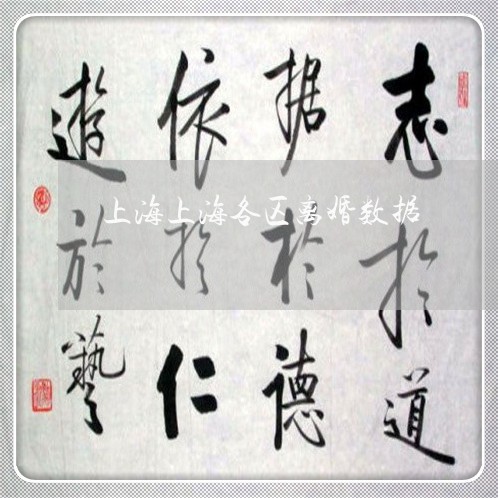 志於道
据於德
依於仁
遊於藝
上海上海各区离婚数据